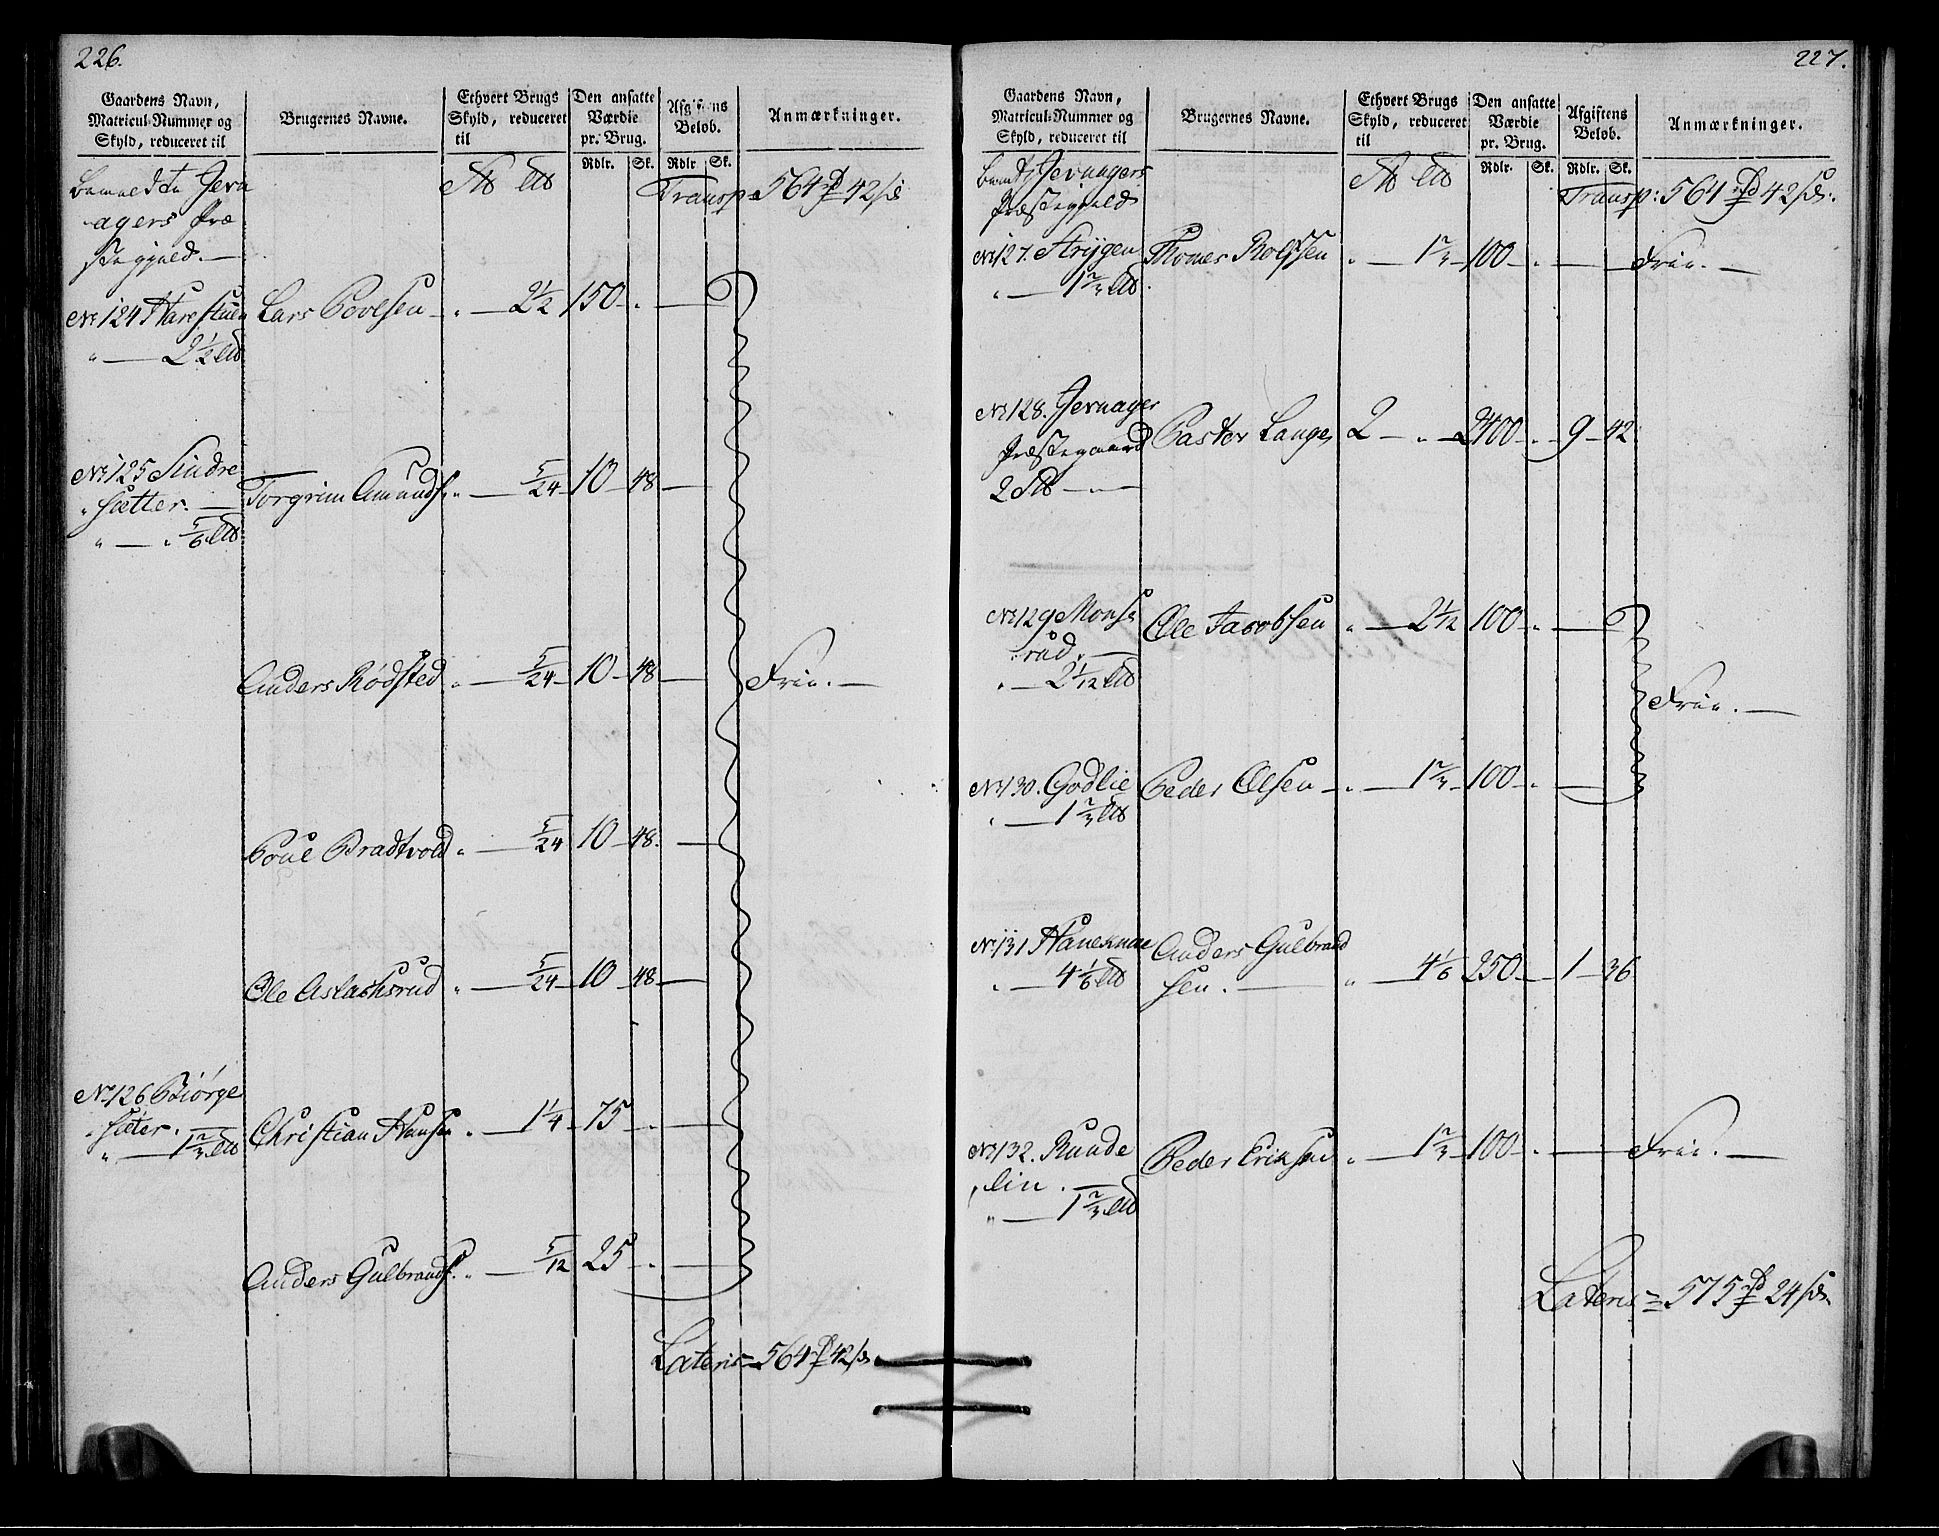 226.
Gaardens Navn, Matricul-Nummer og Skyld, reduceret til
Brugernes Navne.
Ethvert Brugs Skyld, reduceret til
Den ansatte Værdie pr. Brug.
Afgiftens Beløb.
Anmærkninger.
Rdlr. Sk. Rdlr Sk.
bemeldte Jevn
agers Præ
stegjeld. —
Transp. 564 42
No 124 Harestuen Lars Povlsen - " — 2½ 150 - . —
" — 2½
No 125 Sindre
sætter. — Torgrim Amunds. " — 5/24 10 - 48 —
" — " 5/6
Anders Rødsted " — 5/24 - 10 - 48 — Frie. —
Poul Bradtvold " — 5/24 10 - 48. —
Ole Aslachsrud " — 5/24 - 10 - 48 —
No 126 Biørge
sæter. — Christian Hansen " — 1¼ - 75 - . —
" — 1⅔
Anders Gulbrands. " — 5/12 25 - . —
Lateris = 564 42
227.
Gaardens Navn, Matricul-Nummer og Skyld, reduceret til
Brugernes Navne.
Ethvert Brugs Skyld, reduceret til
Den ansatte Værdie pr. Brug.
Afgiftens Beløb.
Anmærkninger.
Rdlr. Sk. Rdlr. Sk.
bemte Jevnagers
Præstegjeld
Transp: 564 42
No 127. Strygen Thomes Rolfsen " — 1⅔ - 100 - . — Frie. —
" — 1⅔
No 128. Jevnager
Præstegaard Pastor Lange, 2 - " — 2400 - . - 9 - 42
2
No 129 Monse
rud. — Ole Jacobsen " — 2 1/12 100 - . —
" — 2 1/12
Frie. —
No 130. Godlie Peder Olsen - " — 1⅔ - 100 - . —
" — 1⅔
No 131 Haneknæ Anders Gulbrand
" — 4⅙ sen. — " — 4⅙ 250 — 1 - 36
No 132. Runde
lin. — Peder Eriksen " — 1⅔ - 100 - . — Frie. —
" — 1⅔
Lateris = 575 24